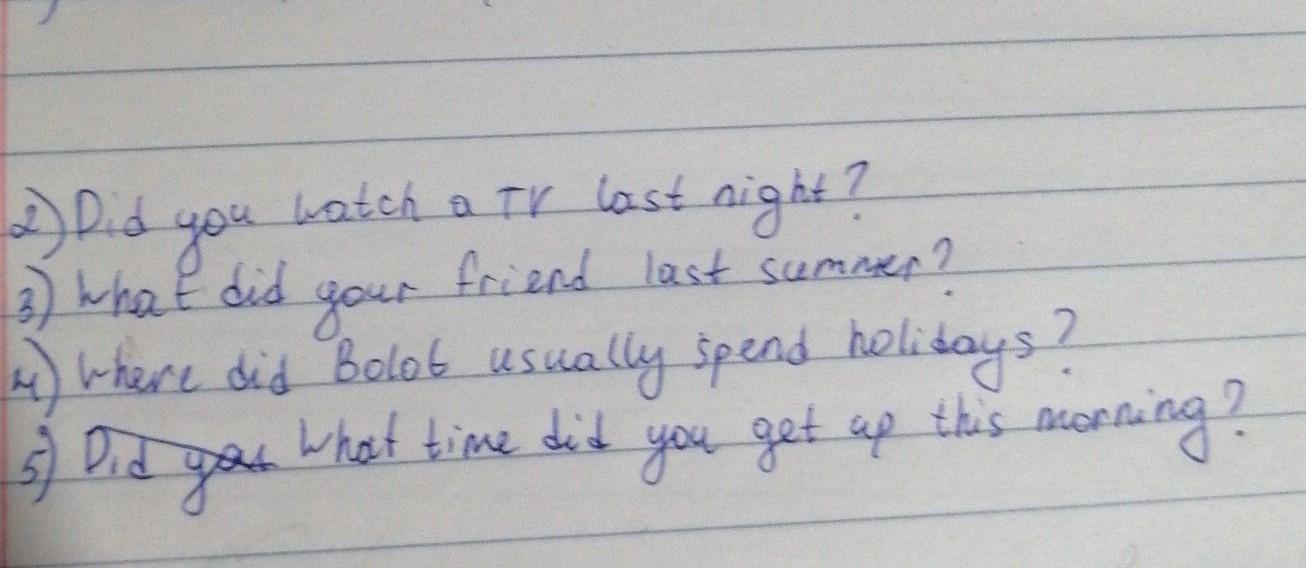 2) Did you watch a TV last night?
3) What did your friend last summer?
4) Where did Bolot usually spend holidays?
5) Did you What time did you get up this morning?